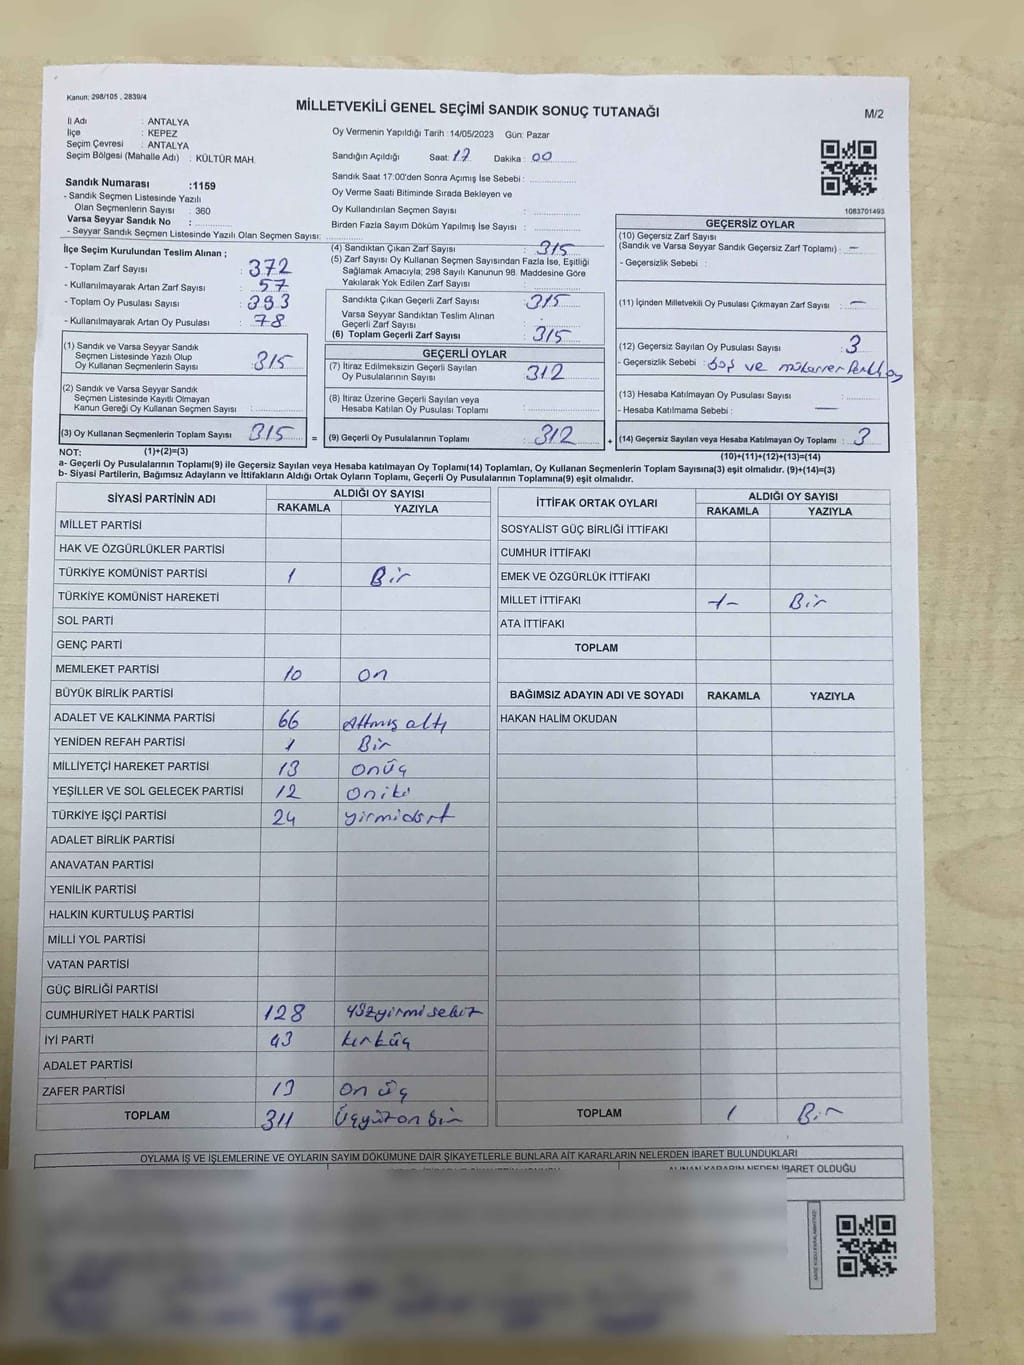 Kanun: 298/105 , 2839/4
MİLLETVEKİLİ GENEL SEÇİMİ SANDIK SONUÇ TUTANAĞI
M/2
İl Adı : ANTALYA
İlçe : KEPEZ
Seçim Çevresi : ANTALYA
Seçim Bölgesi (Mahalle Adı) : KÜLTÜR MAH.
Oy Vermenin Yapıldığı Tarih :14/05/2023 Gün: Pazar
Sandığın Açıldığı Saat: 17 Dakika : 00
Sandık Saat 17:00'den Sonra Açımış İse Sebebi :
Oy Verme Saati Bitiminde Sırada Bekleyen ve
Oy Kullandırılan Seçmen Sayısı :
Birden Fazla Sayım Döküm Yapılmış İse Sayısı :
1083701493
Sandık Numarası :1159
- Sandık Seçmen Listesinde Yazılı
Olan Seçmenlerin Sayısı : 360
Varsa Seyyar Sandık No :
- Seyyar Sandık Seçmen Listesinde Yazılı Olan Seçmen Sayısı:
İlçe Seçim Kurulundan Teslim Alınan ;
- Toplam Zarf Sayısı : 372
- Kullanılmayarak Artan Zarf Sayısı : 57
- Toplam Oy Pusulası Sayısı : 393
- Kullanılmayarak Artan Oy Pusulası : 78
(1) Sandık ve Varsa Seyyar Sandık
Seçmen Listesinde Yazılı Olup
Oy Kullanan Seçmenlerin Sayısı : 315
(2) Sandık ve Varsa Seyyar Sandık
Seçmen Listesinde Kayıtlı Olmayan
Kanun Gereği Oy Kullanan Seçmen Sayısı :
(3) Oy Kullanan Seçmenlerin Toplam Sayısı : 315
(4) Sandıktan Çıkan Zarf Sayısı : 315
(5) Zarf Sayısı Oy Kullanan Seçmen Sayısından Fazla İse, Eşitliği
Sağlamak Amacıyla; 298 Sayılı Kanunun 98. Maddesine Göre
Yakılarak Yok Edilen Zarf Sayısı :
Sandıkta Çıkan Geçerli Zarf Sayısı : 315
Varsa Seyyar Sandıktan Teslim Alınan
Geçerli Zarf Sayısı :
(6) Toplam Geçerli Zarf Sayısı : 315
GEÇERLİ OYLAR
(7) İtiraz Edilmeksizin Geçerli Sayılan
Oy Pusulalarının Sayısı : 312
(8) İtiraz Üzerine Geçerli Sayılan veya
Hesaba Katılan Oy Pusulası Toplamı :
= (9) Geçerli Oy Pusulalarının Toplamı : 312
GEÇERSİZ OYLAR
(10) Geçersiz Zarf Sayısı
(Sandık ve Varsa Seyyar Sandık Geçersiz Zarf Toplamı) : —
- Geçersizlik Sebebi :
(11) İçinden Milletvekili Oy Pusulası Çıkmayan Zarf Sayısı : —
(12) Geçersiz Sayılan Oy Pusulası Sayısı : 3
- Geçersizlik Sebebi : boş ve mükerrer
(13) Hesaba Katılmayan Oy Pusulası Sayısı :
- Hesaba Katılmama Sebebi : —
+ (14) Geçersiz Sayılan veya Hesaba Katılmayan Oy Toplamı : 3
NOT: (1)+(2)=(3)
(10)+(11)+(12)+(13)=(14)
a- Geçerli Oy Pusulalarının Toplamı(9) ile Geçersiz Sayılan veya Hesaba katılmayan Oy Toplamı(14) Toplamları, Oy Kullanan Seçmenlerin Toplam Sayısına(3) eşit olmalıdır. (9)+(14)=(3)
b- Siyasi Partilerin, Bağımsız Adayların ve İttifakların Aldığı Ortak Oyların Toplamı, Geçerli Oy Pusulalarının Toplamına(9) eşit olmalıdır.
SİYASİ PARTİNİN ADI ALDIĞI OY SAYISI
RAKAMLA YAZIYLA
MİLLET PARTİSİ
HAK VE ÖZGÜRLÜKLER PARTİSİ
TÜRKİYE KOMÜNİST PARTİSİ 1 Bir
TÜRKİYE KOMÜNİST HAREKETİ
SOL PARTİ
GENÇ PARTİ
MEMLEKET PARTİSİ 10 on
BÜYÜK BİRLİK PARTİSİ
ADALET VE KALKINMA PARTİSİ 66 Altmış altı
YENİDEN REFAH PARTİSİ 1 Bir
MİLLİYETÇİ HAREKET PARTİSİ 13 onüç
YEŞİLLER VE SOL GELECEK PARTİSİ 12 oniki
TÜRKİYE İŞÇİ PARTİSİ 24 yirmidört
ADALET BİRLİK PARTİSİ
ANAVATAN PARTİSİ
YENİLİK PARTİSİ
HALKIN KURTULUŞ PARTİSİ
MİLLİ YOL PARTİSİ
VATAN PARTİSİ
GÜÇ BİRLİĞİ PARTİSİ
CUMHURİYET HALK PARTİSİ 128 yüzyirmisekiz
İYİ PARTİ 43 kırküç
ADALET PARTİSİ
ZAFER PARTİSİ 13 on üç
TOPLAM 311 Üçyüzonbir
İTTİFAK ORTAK OYLARI ALDIĞI OY SAYISI
RAKAMLA YAZIYLA
SOSYALİST GÜÇ BİRLİĞİ İTTİFAKI
CUMHUR İTTİFAKI
EMEK VE ÖZGÜRLÜK İTTİFAKI
MİLLET İTTİFAKI -1- Bir
ATA İTTİFAKI
TOPLAM
BAĞIMSIZ ADAYIN ADI VE SOYADI RAKAMLA YAZIYLA
HAKAN HALİM OKUDAN
TOPLAM 1 Bir
OYLAMA İŞ VE İŞLEMLERİNE VE OYLARIN SAYIM DÖKÜMÜNE DAİR ŞİKAYETLERLE BUNLARA AİT KARARLARIN NELERDEN İBARET BULUNDUKLARI
ALINAN KARARIN NEDEN İBARET OLDUĞU